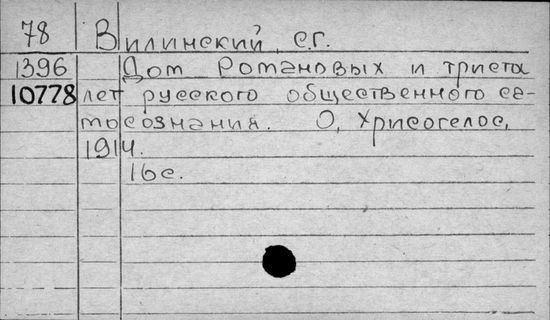 78 Вилинский, С.Г.
1396 Дом Романовых и триста
10778 лет русского общественного са-
мосознания. О, Хрисогелос,
1914.
16с.